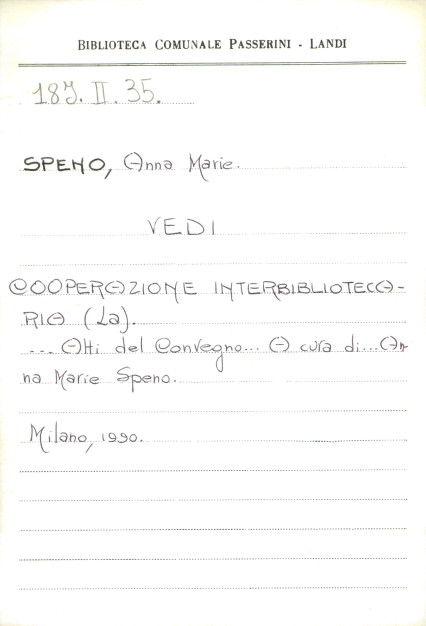 BIBLIOTECA COMUNALE PASSERINI - LANDI
187. II. 35.
SPENO, Anna Marie.
VEDI
COOPERAZIONE INTERBIBLIOTECA-
RIA (La).
... Atti del Convegno... A cura di... An-
na Marie Speno.
Milano, 1990.